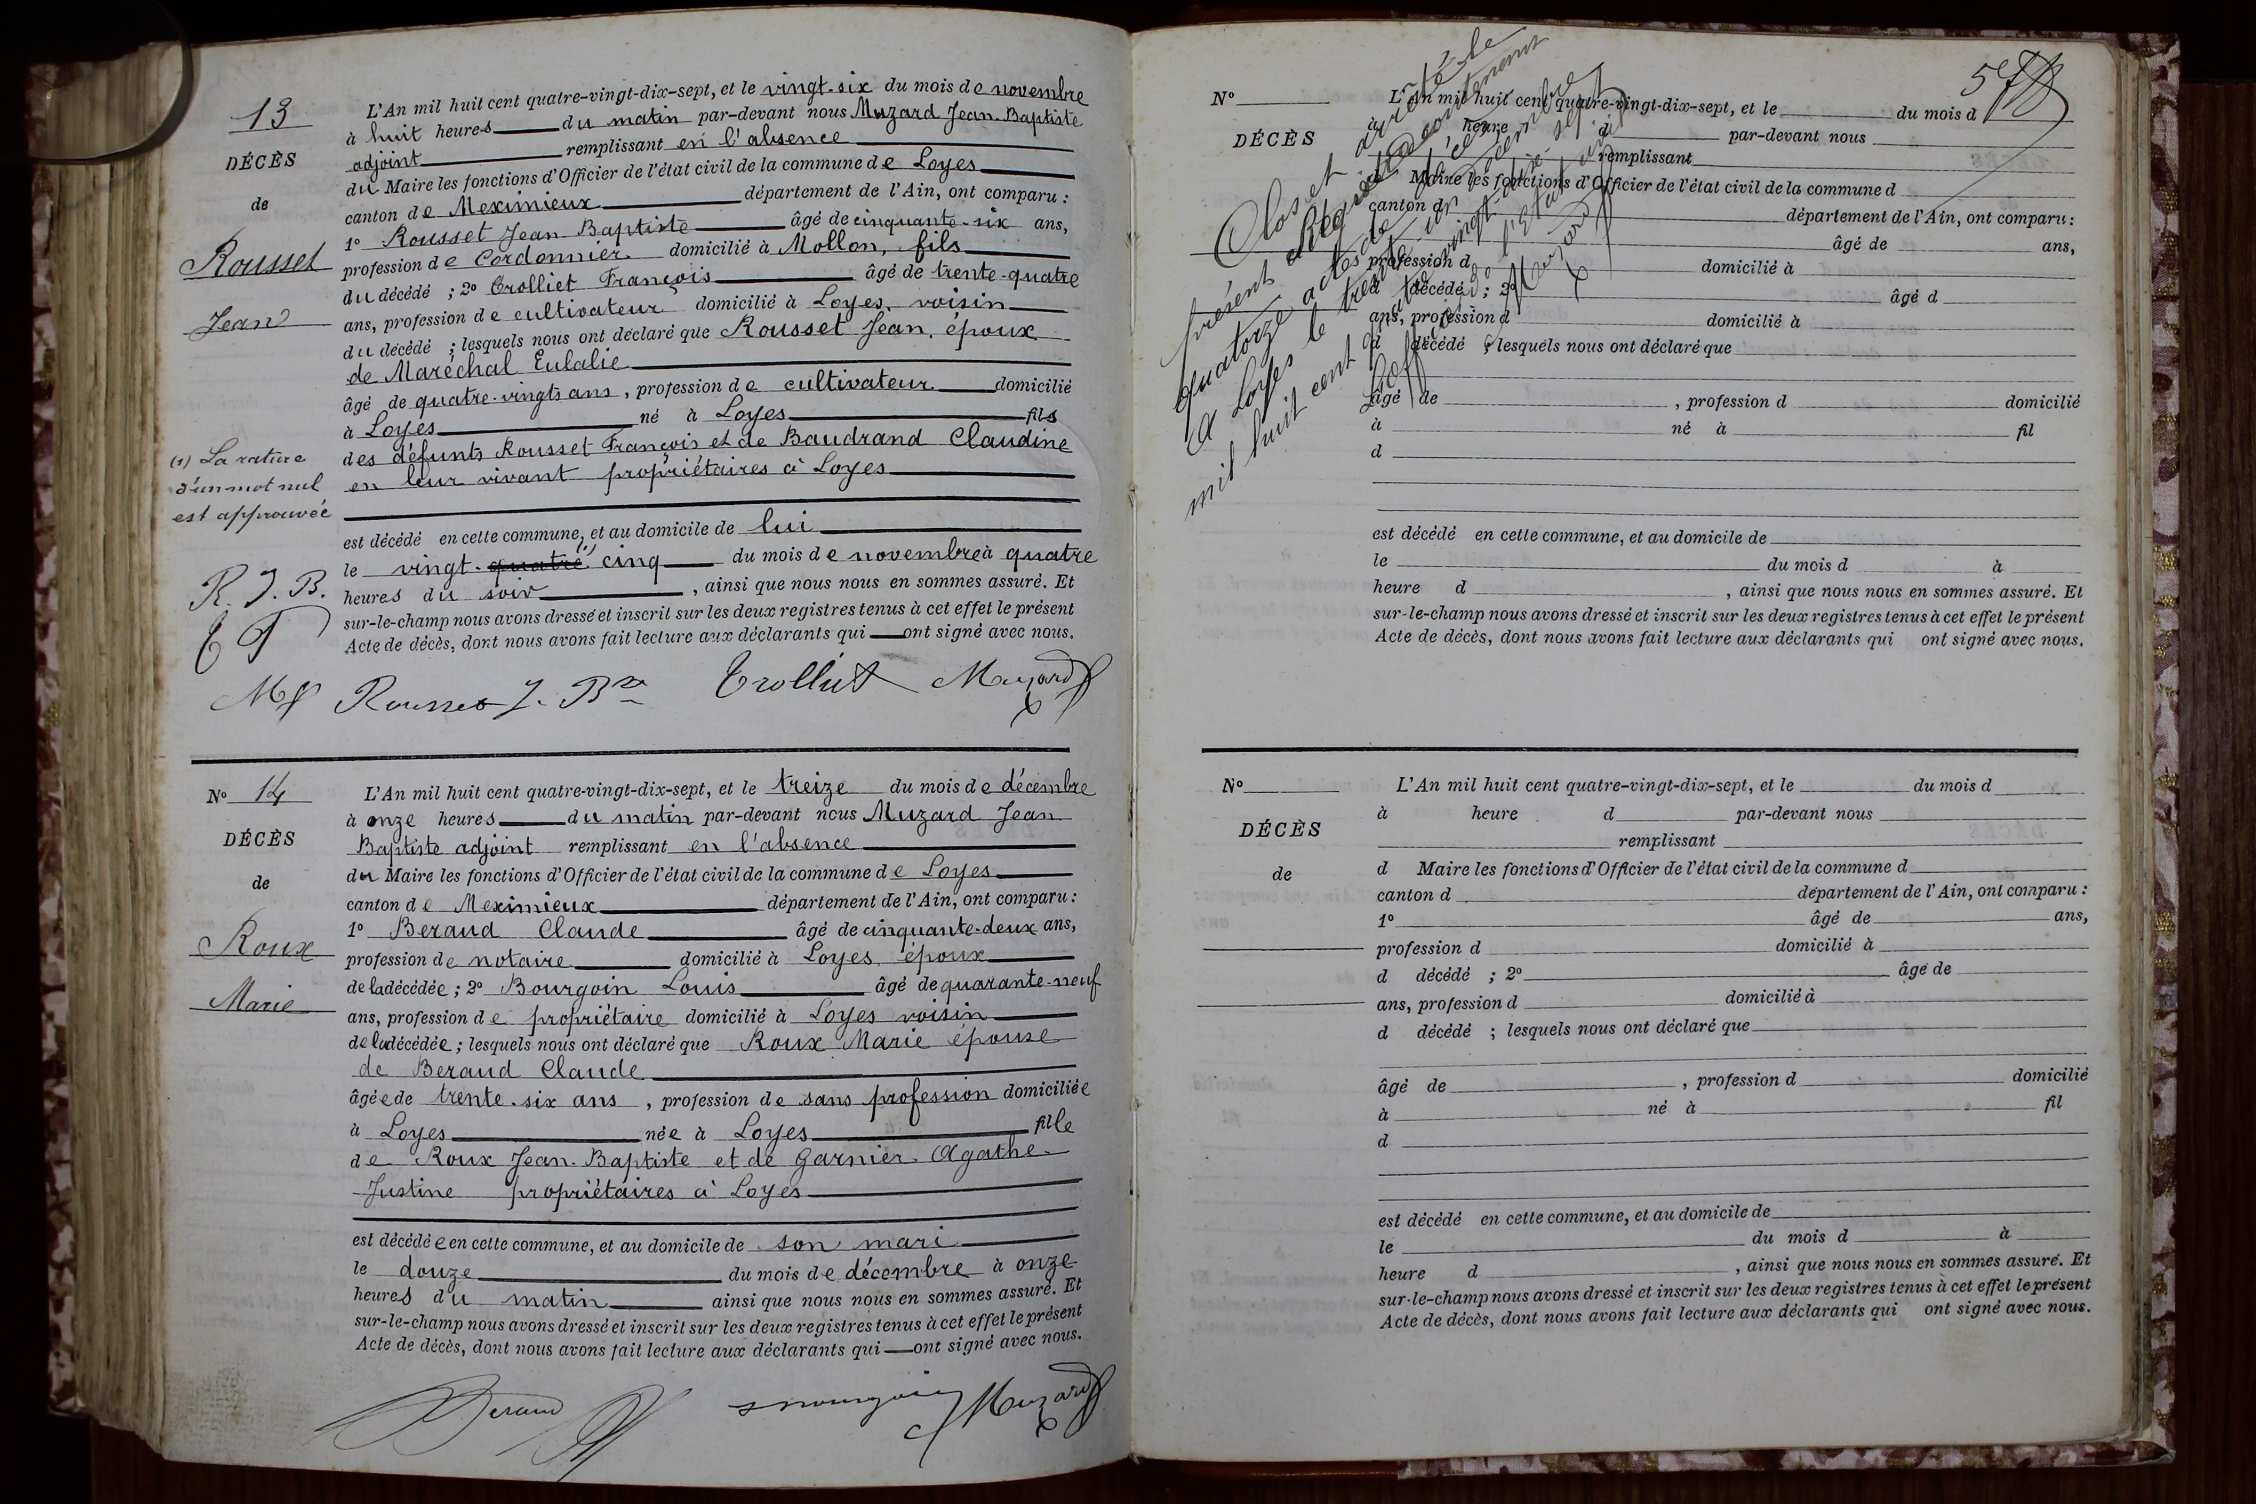 13
DÉCÈS
de
Rousset
Jean
L'An mil huit cent quatre-vingt-dix-sept, et le vingt-six du mois de novembre
à huit heures du matin par-devant nous Muzard Jean-Baptiste
adjoint remplissant en l'absence
du Maire les fonctions d'Officier de l'état civil de la commune de Loyes
canton de Meximieux département de l'Ain, ont comparu :
1º Rousset Jean Baptiste âgé de cinquante-six ans,
profession de Cordonnier domicilié à Mollon, fils
du décédé ; 2º Trolliet François âgé de trente-quatre
ans, profession de cultivateur domicilié à Loyes, voisin
du décédé ; lesquels nous ont déclaré que Rousset Jean, époux
de Maréchal Eulalie
âgé de quatre-vingts ans, profession de cultivateur domicilié
à Loyes né à Loyes fils
des défunts Rousset François et de Baudrand Claudine
en leur vivant propriétaires à Loyes
est décédé en cette commune, et au domicile de lui
le vingt-quatre (1) cinq du mois de novembre à quatre
heures du soir, ainsi que nous nous en sommes assuré. Et
sur-le-champ nous avons dressé et inscrit sur les deux registres tenus à cet effet le présent
Acte de décès, dont nous avons fait lecture aux déclarants qui ont signé avec nous.
(1) La rature
d'un mot nul
est approuvée
R. J. B.
T F
M
Rousset J. Bte Trolliet Muzard
Nº 14
DÉCÈS
de
Roux
Marie
L'An mil huit cent quatre-vingt-dix-sept, et le treize du mois de décembre
à onze heures du matin par-devant nous Muzard Jean
Baptiste adjoint remplissant en l'absence
du Maire les fonctions d'Officier de l'état civil de la commune de Loyes
canton de Meximieux département de l'Ain, ont comparu :
1º Beraud Claude âgé de cinquante-deux ans,
profession de notaire domicilié à Loyes, époux
de la décédée ; 2º Bourgoin Louis âgé de quarante-neuf
ans, profession de propriétaire domicilié à Loyes voisin
de la décédée ; lesquels nous ont déclaré que Roux Marie épouse
de Beraud Claude
âgée de trente-six ans, profession de sans profession domiciliée
à Loyes née à Loyes fille
de Roux Jean-Baptiste et de Garnier Agathe
Justine propriétaires à Loyes
est décédée en cette commune, et au domicile de son mari
le douze du mois de décembre à onze
heures du matin ainsi que nous nous en sommes assuré. Et
sur-le-champ nous avons dressé et inscrit sur les deux registres tenus à cet effet le présent
Acte de décès, dont nous avons fait lecture aux déclarants qui ont signé avec nous.
Beraud Bourgoin Muzard
578
Clos et arrêté le
présent Registre contenant
quatorze actes de décès
A Loyes le trente-un décembre
mil huit cent quatre vingt-dix-sept
L'officier de l'Etat civil
Muzard
Nº
DÉCÈS
L'An mil huit cent quatre-vingt-dix-sept, et le du mois d
à heure d par-devant nous
remplissant
d Maire les fonctions d'Officier de l'état civil de la commune d
canton d département de l'Ain, ont comparu :
âgé de ans,
profession d domicilié à
d décédé ; 2º âgé d
ans, profession d domicilié à
d décédé ; lesquels nous ont déclaré que
âgé de , profession d domicilié
à né à fil
d
est décédé en cette commune, et au domicile de
le du mois d à
heure d , ainsi que nous nous en sommes assuré. Et
sur-le-champ nous avons dressé et inscrit sur les deux registres tenus à cet effet le présent
Acte de décès, dont nous avons fait lecture aux déclarants qui ont signé avec nous.
Nº
DÉCÈS
de
L'An mil huit cent quatre-vingt-dix-sept, et le du mois d
à heure d par-devant nous
remplissant
d Maire les fonctions d'Officier de l'état civil de la commune d
canton d département de l'Ain, ont comparu :
1º âgé de ans,
profession d domicilié à
d décédé ; 2º âgé de
ans, profession d domicilié à
d décédé ; lesquels nous ont déclaré que
âgé de , profession d domicilié
à né à fil
d
est décédé en cette commune, et au domicile de
le du mois d à
heure d , ainsi que nous nous en sommes assuré. Et
sur-le-champ nous avons dressé et inscrit sur les deux registres tenus à cet effet le présent
Acte de décès, dont nous avons fait lecture aux déclarants qui ont signé avec nous.